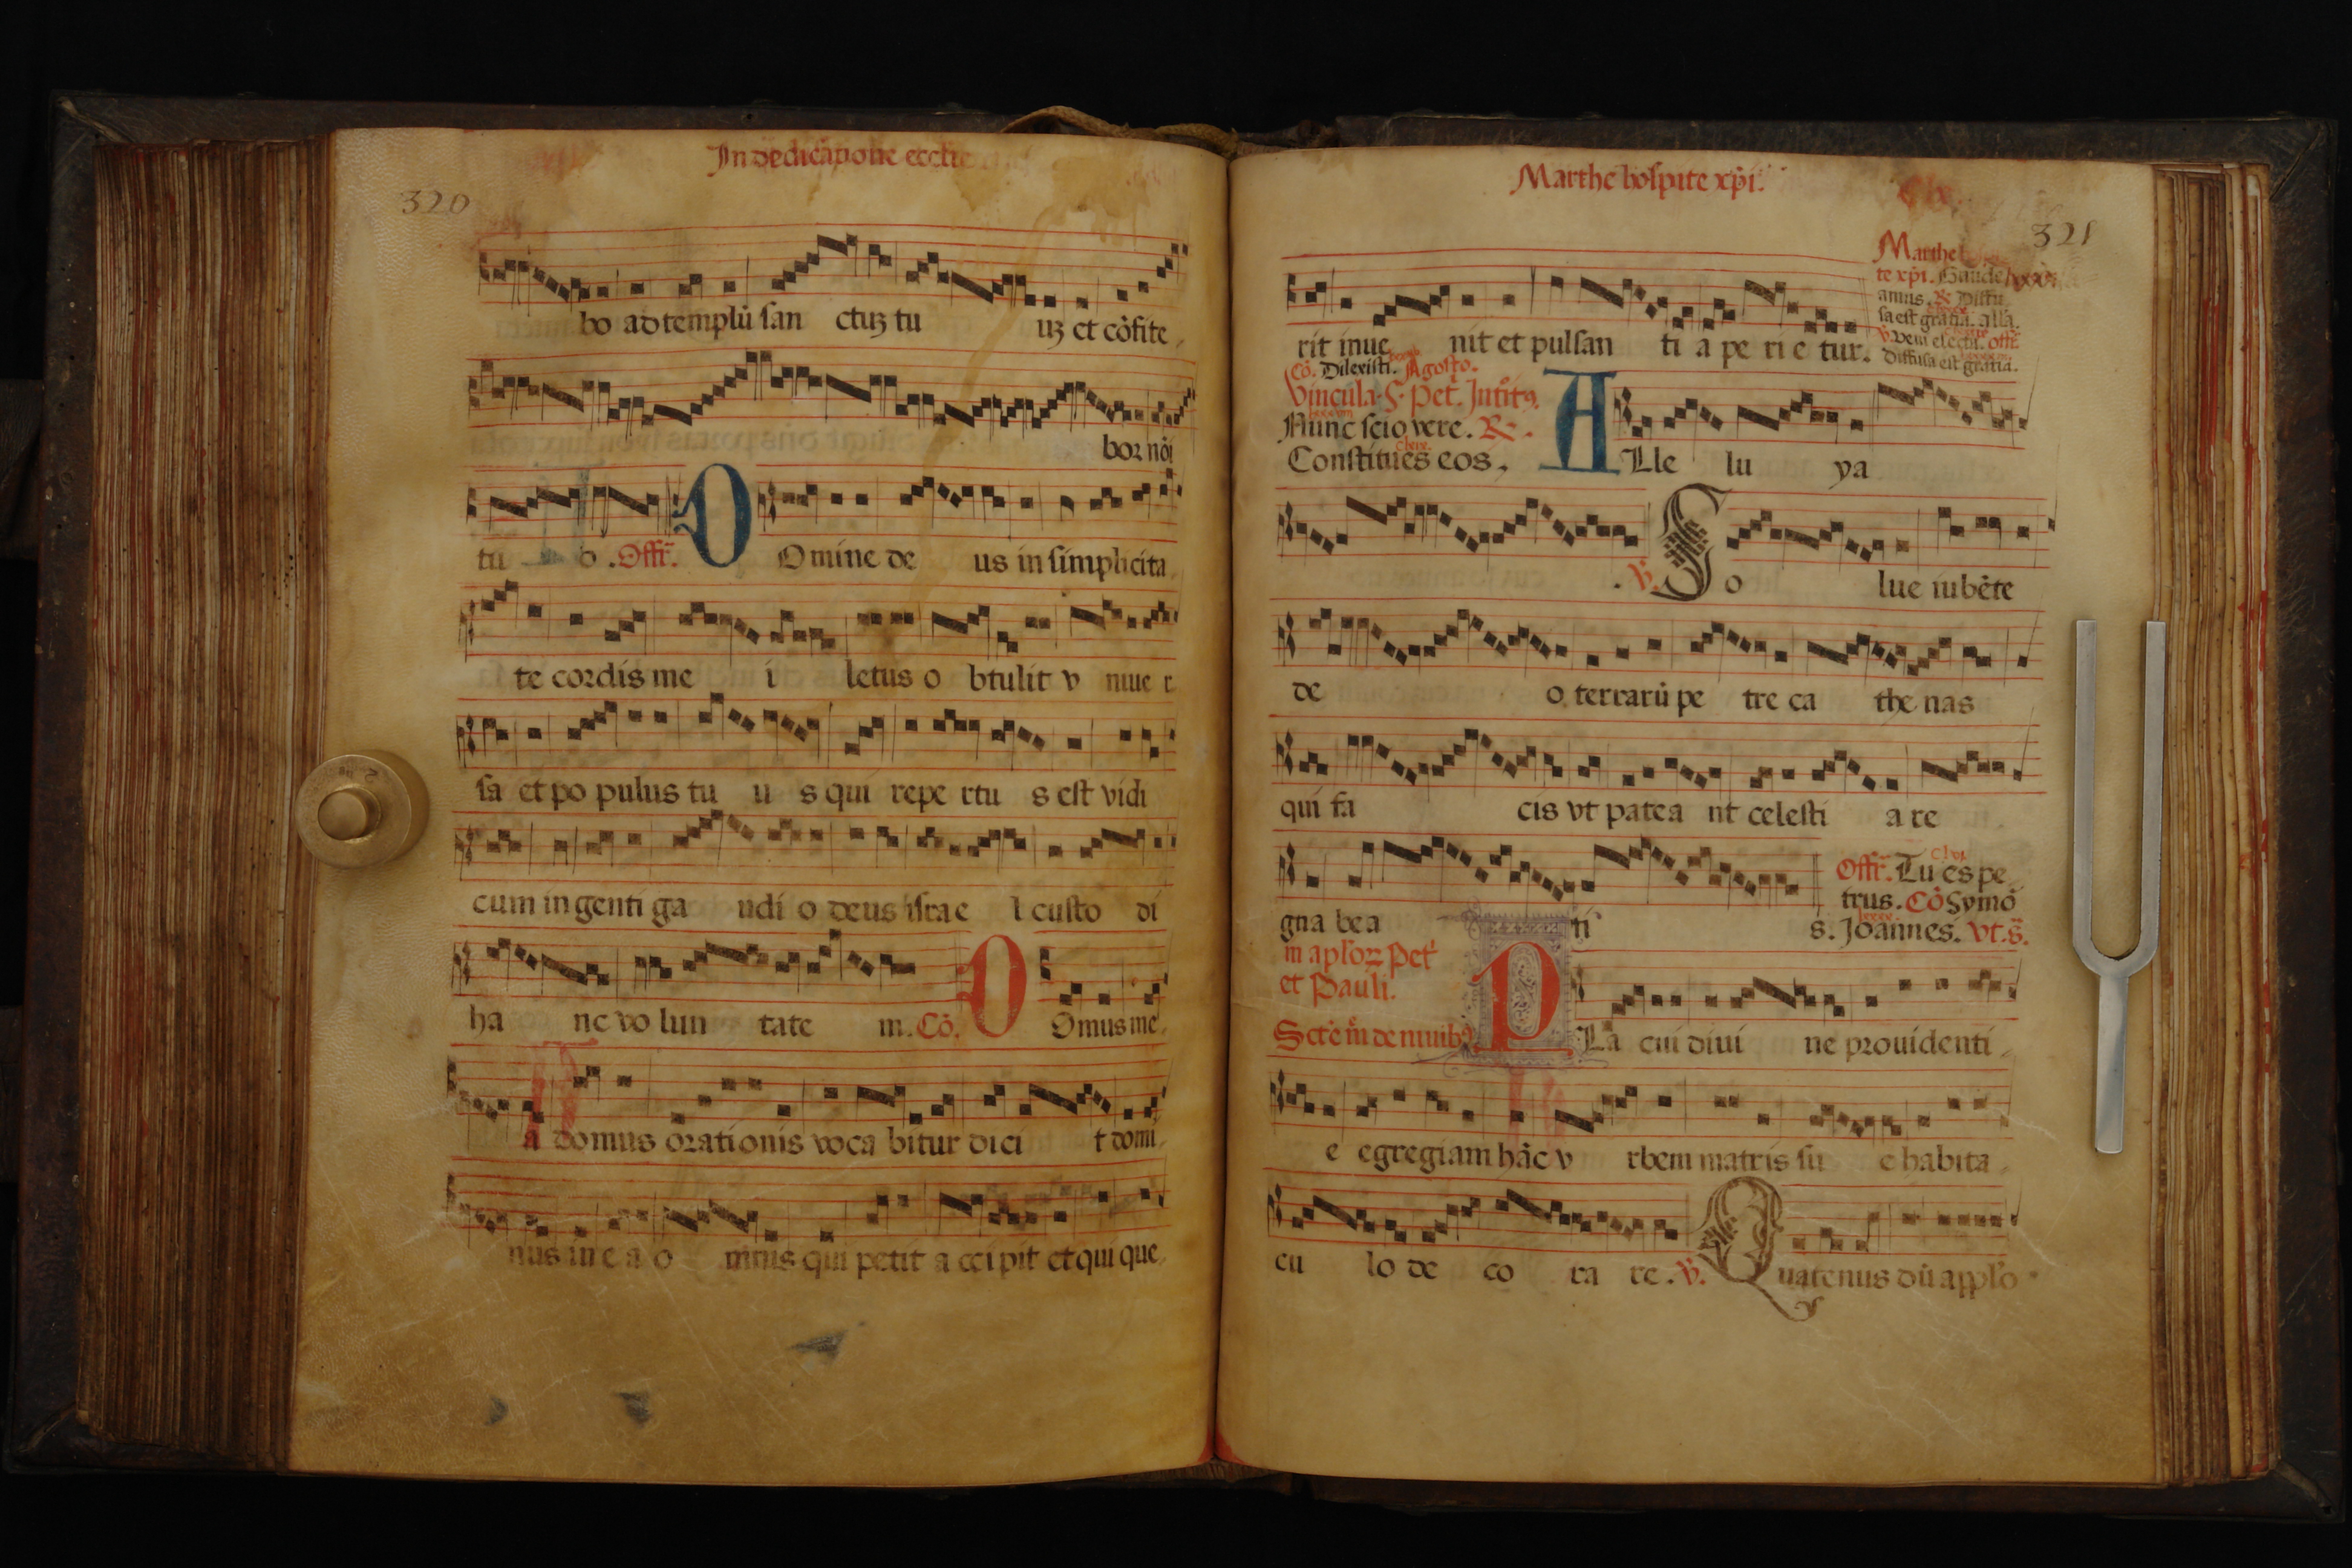 In dedicatione ecclie
320
bo ad templū san ctuȝ tu uȝ et cōfite
bor nōi
tu o . Offr̄. D Omine de us in simplicita
te cordis me i letus o btulit v niue r
sa et po pulus tu u s qui repe rtu s est vidi
cum ingenti ga udi o deus israe l custo di
ha nc vo lun tate m. Cō. D Omus me
a domus orationis voca bitur dici t domi
nus in e a o mnis qui petit a ccipit et qui que
Marthe hospite xp̄i.
321
Marthe
te xp̄i. Gaude
amus. R Diffu
sa est gratia. alla.
v̄. Veni electa. offr̄.
Diffusa est gratia.
rit inue nit et pulsan ti a pe ri e tur.
Cō. Dilexisti. Agosto.
Vincula. S. Pet̄. Intit9.
Nunc scio vere. R.
Constitues eos.
A Lle lu ya
. v̄. S o lue iubēte
de o terrarū pe tre ca the nas
qui fa cis vt patea nt celesti a re
gna be a ti s.
Offr̄. Tu es pe
trus. Cō Symō
Joannes. vt. s̄.
in aplorȝ Pet̄
et Pauli.
Scte m̄ de niuib9
P La cui diui ne prouidenti
e egregiam hāc v rbem matris su e habita
cu lo de co ra re. v̄. Q uatenus dū applo